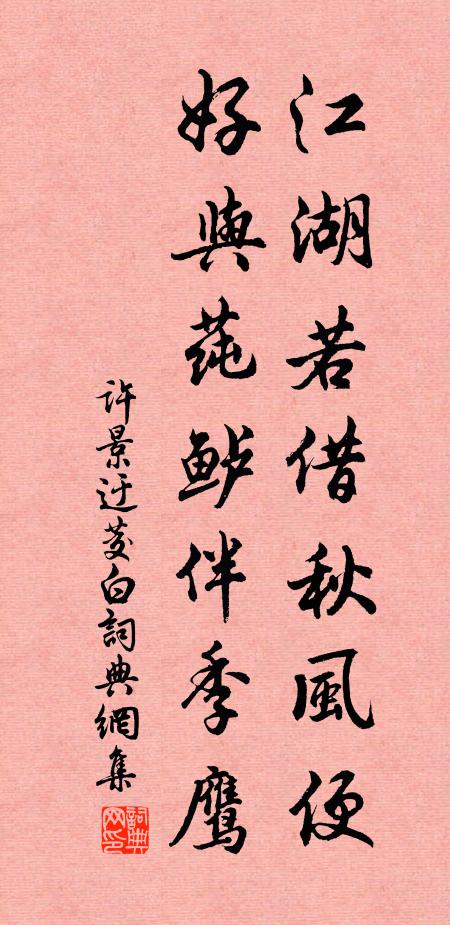 江湖若借秋風便
好與莼鲈伴季鷹
许景迂茭白詞典網集
詞典网印